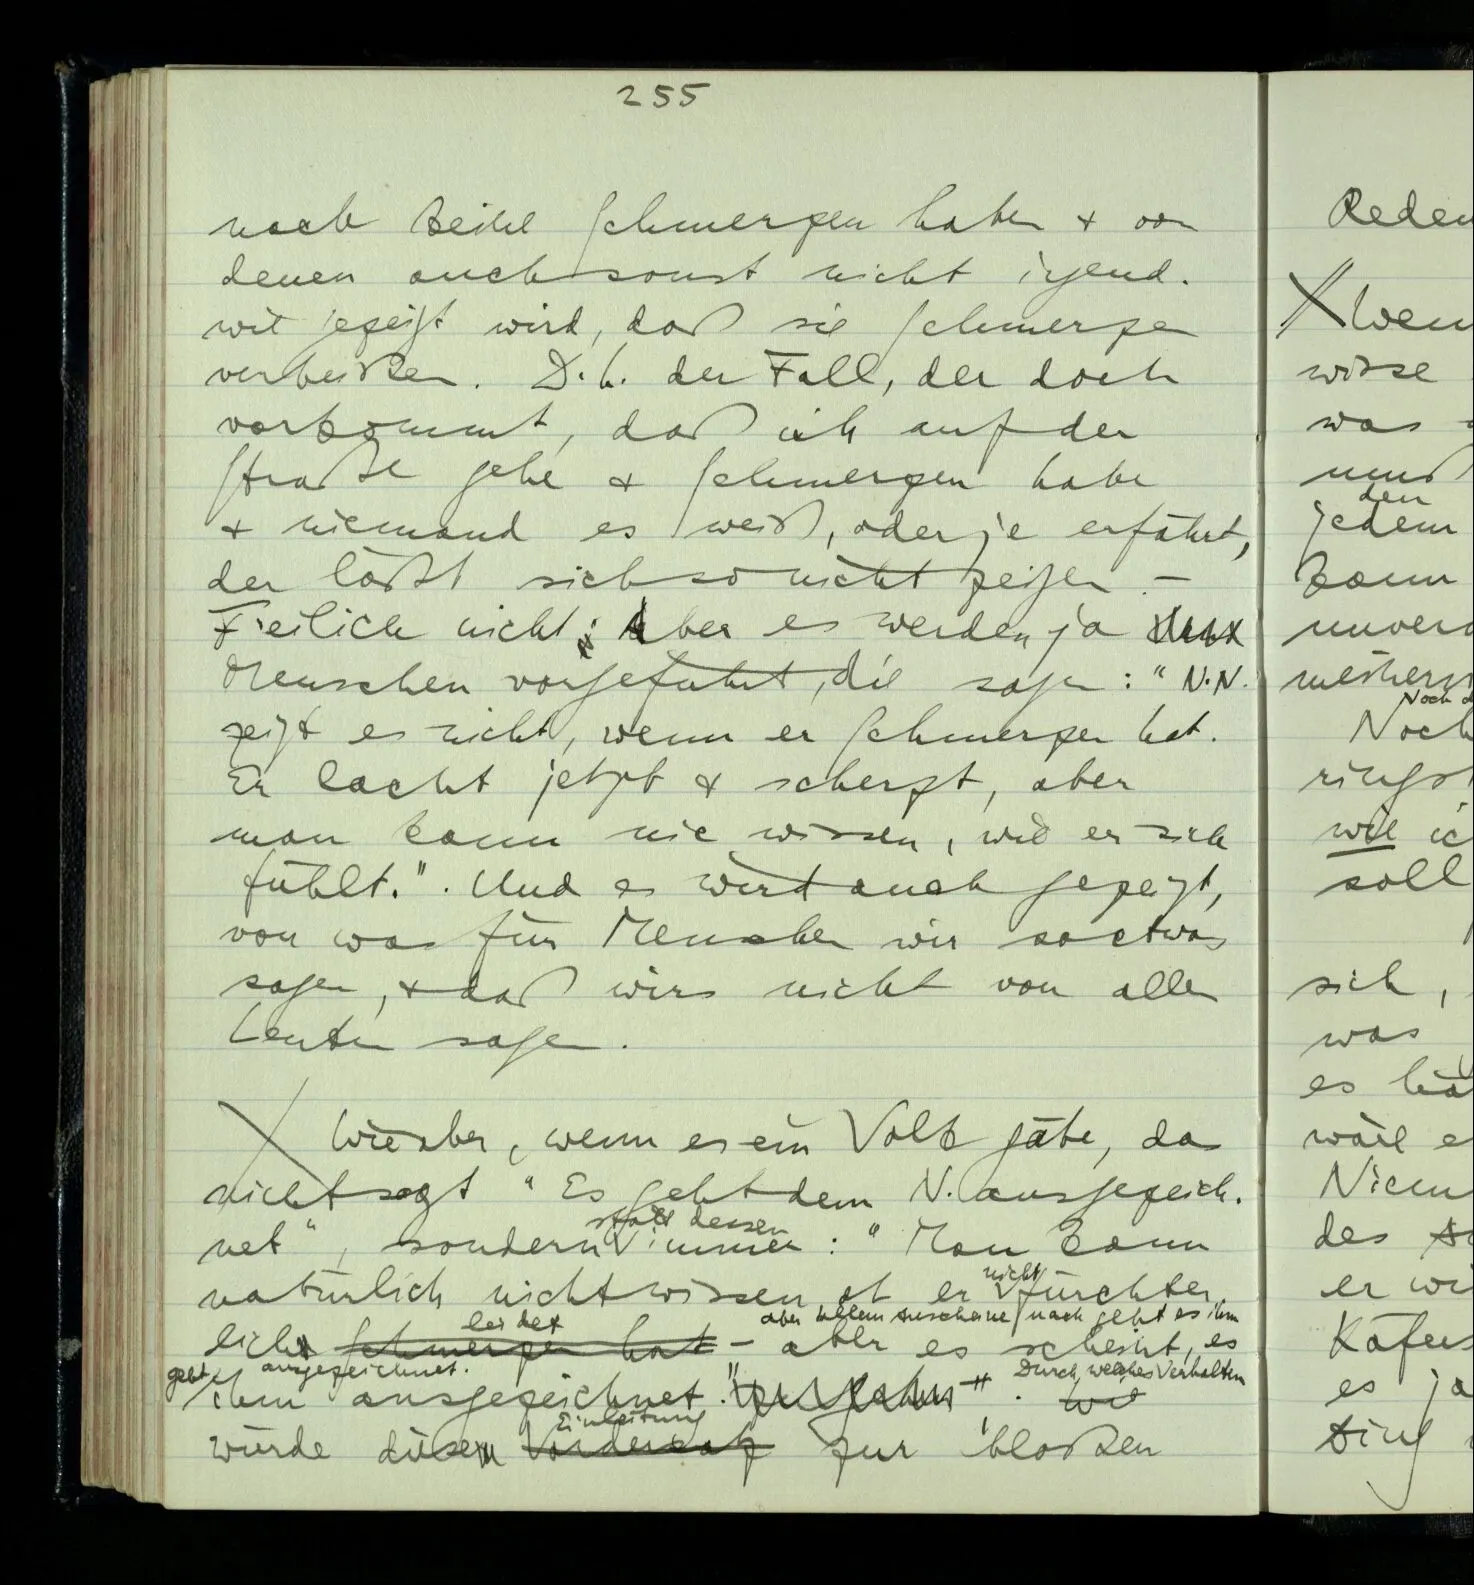 255
noch keine Schmerzen haben & von
denen auch sonst nicht irgend-
wie gezeigt wird, daß sie Schmerzen
verbeißen. D.h. der Fall, der doch
vorkommt, daß ich auf der
Straße gehe & Schmerzen habe
& niemand es weiß, oder je erfährt,
der läßt sich so nicht zeigen –
Freilich nicht; Aber es werden ja
Menschen vorgeführt, die sagen: "N.N.
zeigt es nicht, wenn er Schmerzen hat.
Er lacht jetzt & scherzt, aber
man kann nie wissen, wie er sich
fühlt.". Und es wird auch gezeigt,
von was für Menschen wir so etwas
sagen, & daß wirs nicht von allen
Leuten sagen.
Wie aber, wenn es ein Volk gäbe, das
nicht sagt "Es geht dem N. ausgezeich-
statt dessen
net", sondern immer: "Man kann
nicht
natürlich nicht wissen ob er fürchter-
leidet aber allem Anscheine nach geht es ihm
lich Schmerzen hat – aber es scheint, es
geht ausgezeichnet. Durch welches Verhalten
ihm ausgezeichnet." wie
Einleitung
würde diesem Vordersatz zur bloßen
Reden
wisse
was
den
jedem
kann
Noch
wie
soll
sich,
was
es
er
es ja
Ding